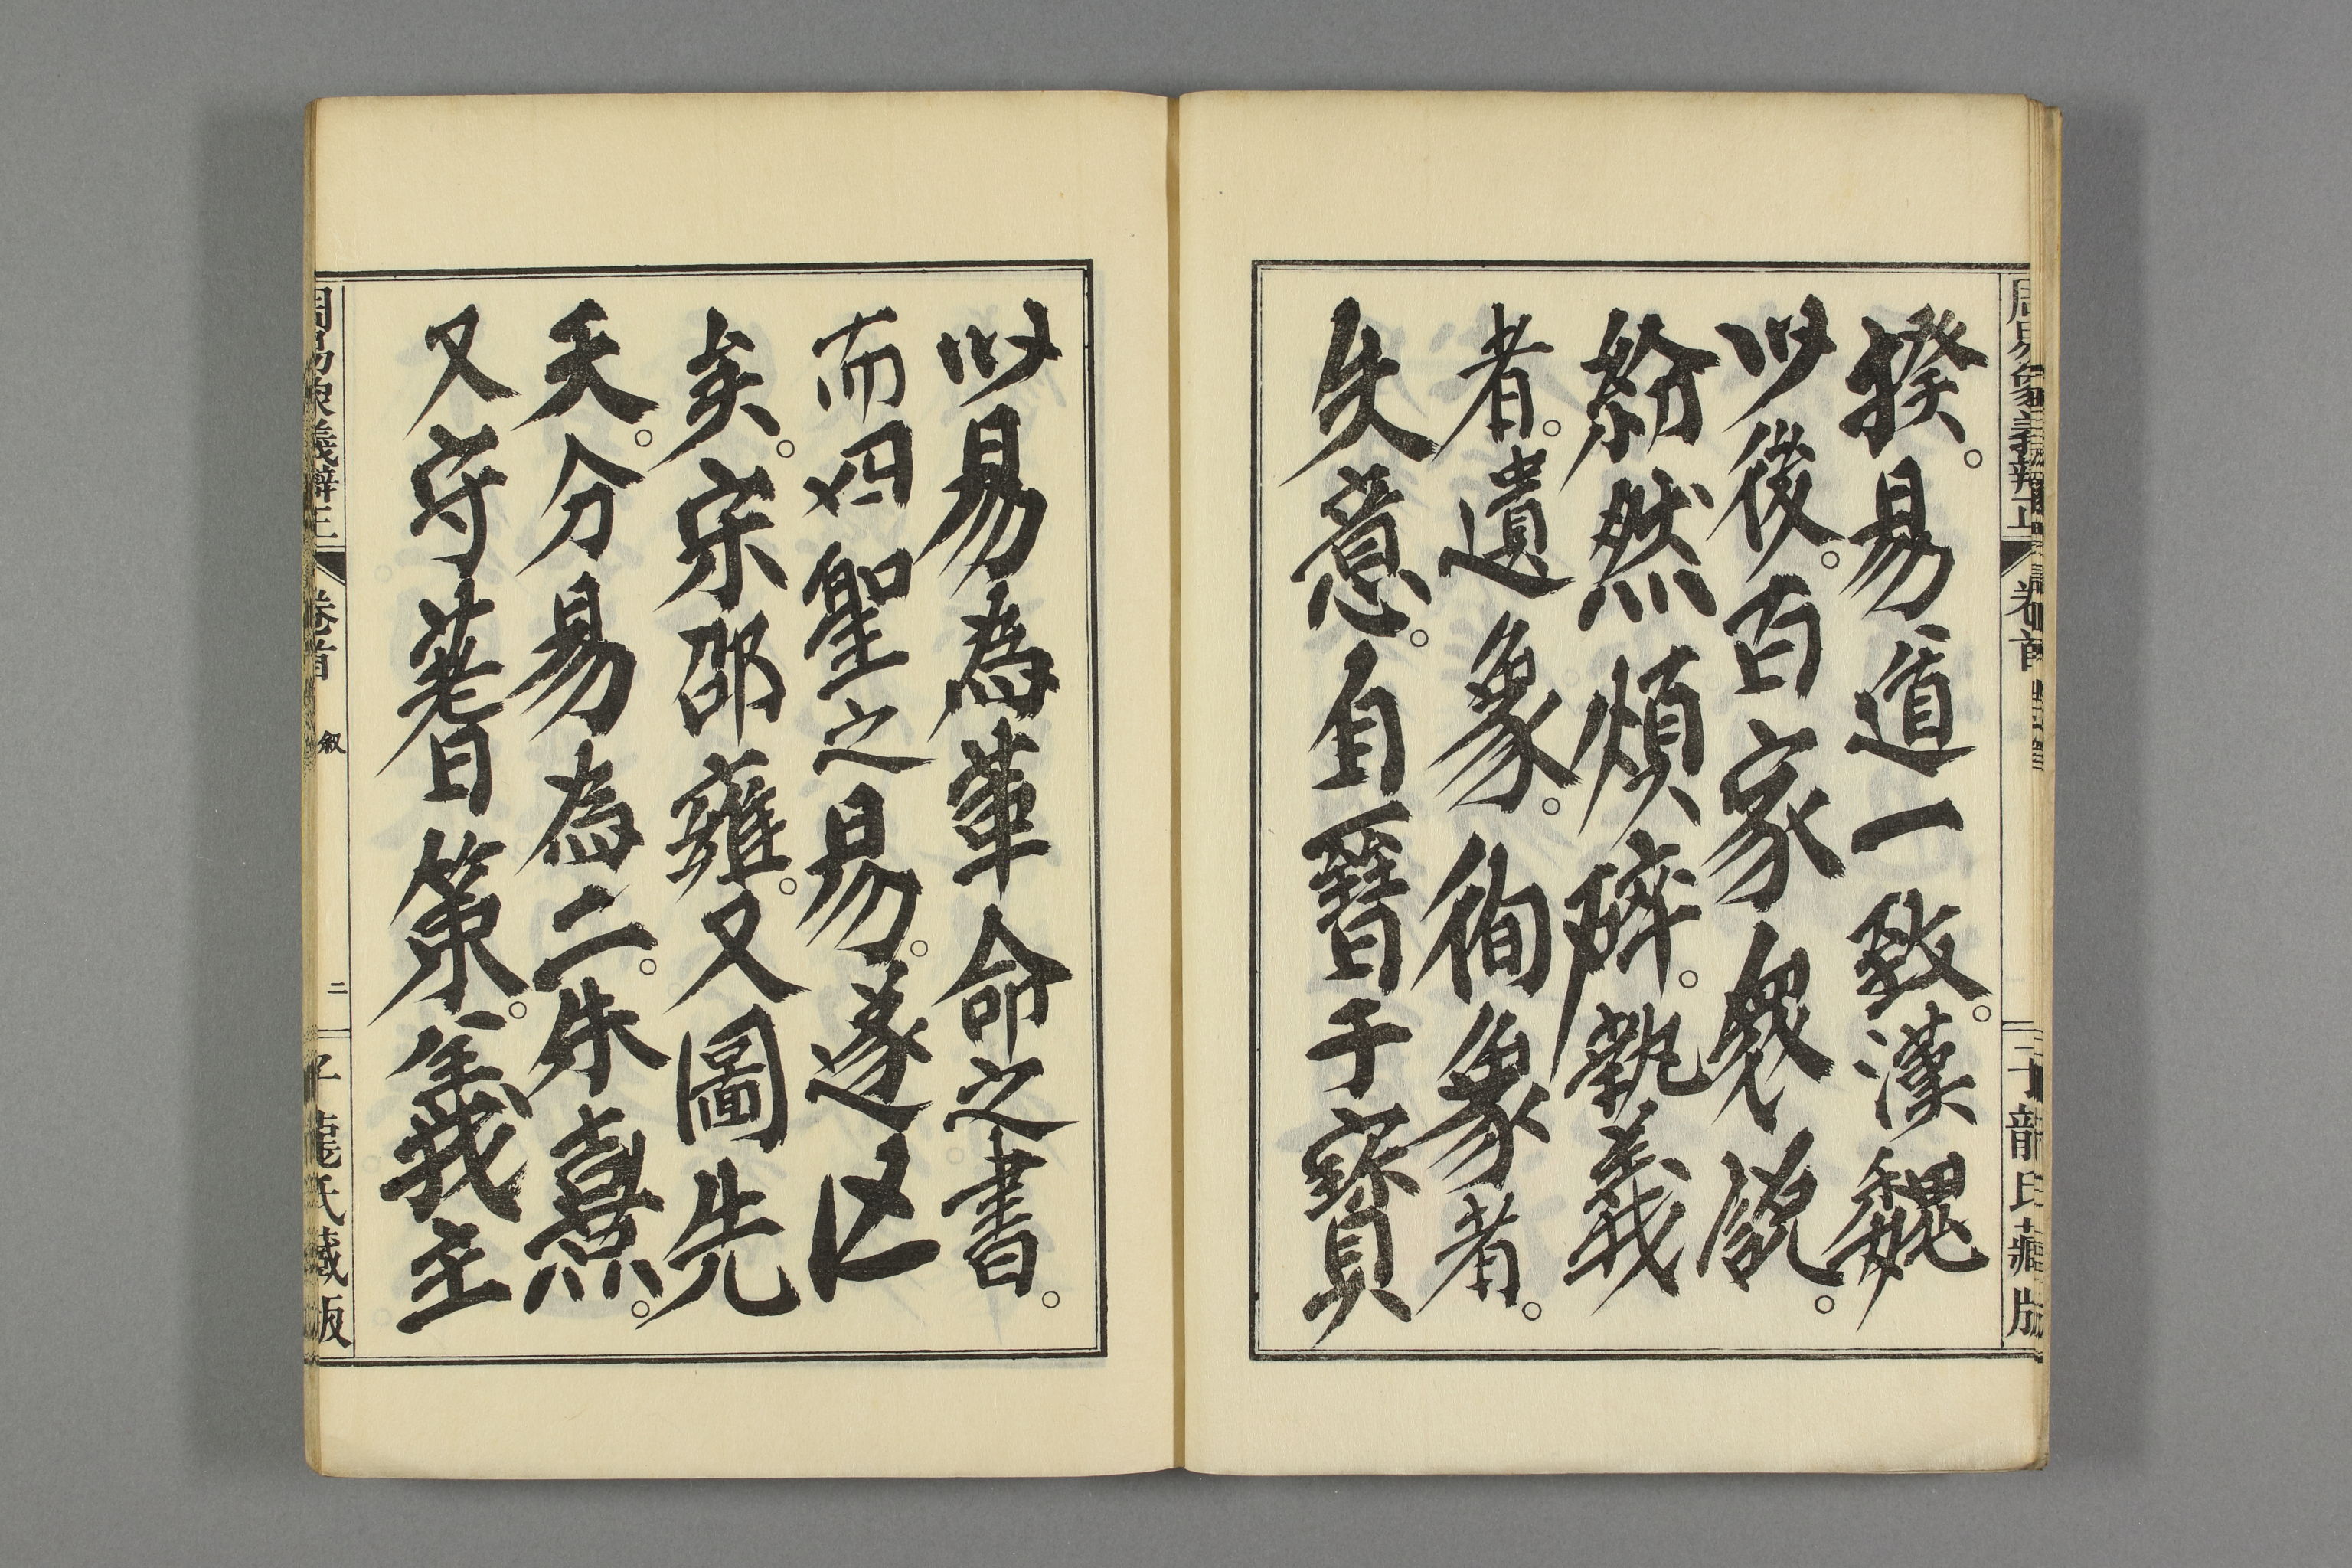 周易象義辯正
卷首
子龍氏藏版
揆。易道一致。漢魏
以後。百家衆說。
紛然煩碎。執義
者。遺象。徇象者。
失意。自晉干寶
以易為革命之書。
而四聖之易。遂亡
矣。宋邵雍。又圖先
天。分易為二。朱熹。
又守蓍策。義主
周易象義辯正
卷首
叙
二
子龍氏藏版